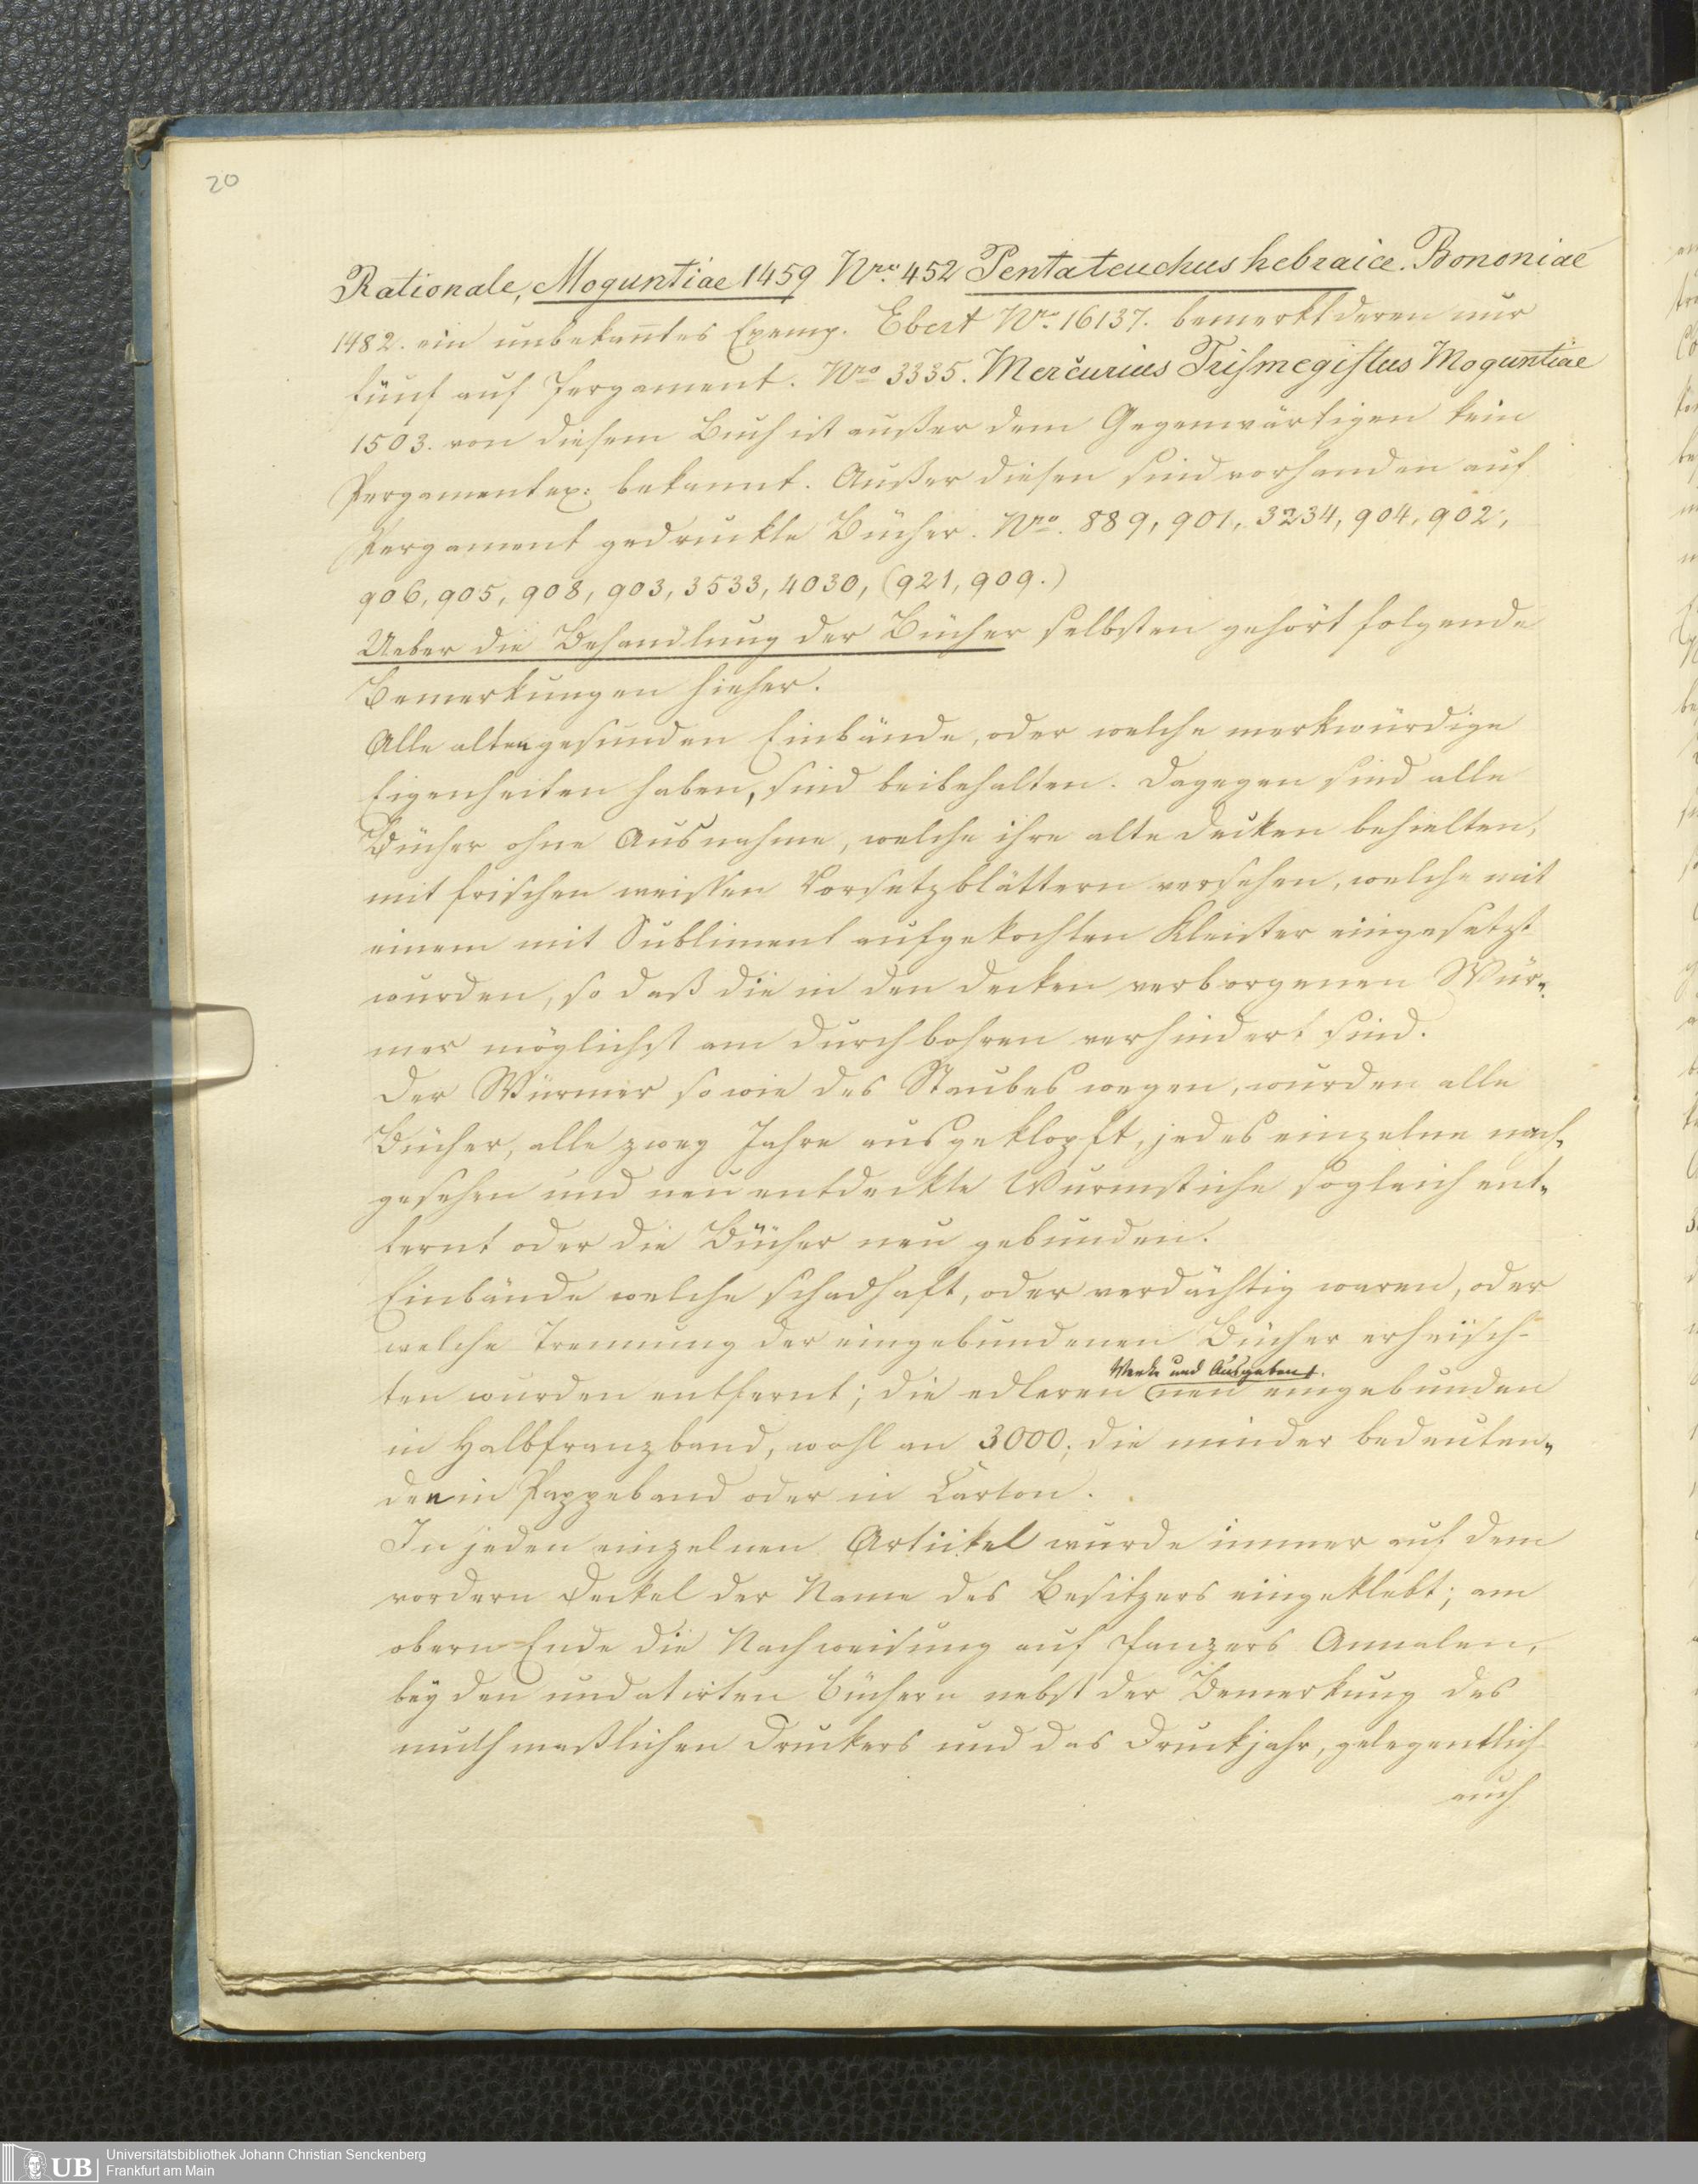 20
Rationale, Moguntiae 1459 Nro. 452 Pentateuchus hebraice. Bononiae
1482. ein unbekan̄tes Exemp. Ebert Nro. 16137. bemerkt deren nur
fünf auf Pergament. Nro 3335. Mercurius Trismegistus Moguntiae
1503. von diesem Buch ist außer dem Gegenwärtigen kein
Pergamentex: bekannt. Außer diesen sind vorhanden auf
Pergament gedruckte Bücher. Nro. 889, 901, 3234, 904, 902,
906, 905, 908, 903, 3533, 4030, (921, 909.)
Ueber die Behandlung der Bücher selbsten gehört folgende
Bemerkungen hieher.
Alle alten gesunden Einbände, oder welche merkwürdige
Eigenheiten haben, sind beibehalten. Dagegen sind alle
Bücher ohne Ausnahme, welche ihre alte Decken behielten,
mit frischen weissen Vorsetzblättern versehen, welche mit
einem mit Subliment aufgekochten Kleister eingesetzt
wurden, so daß die in den Decken verborgenen Wür-
mer möglichst am Durchbohren verhindert sind.
Der Würmer so wie des Staubes wegen, wurden alle
Bücher, alle zwey Jahre ausgeklopft, jedes einzelne nach-
gesehen und neu entdeckte Wurmstiche sogleich ent-
fernt oder die Bücher neu gebunden.
Einbände welche schadhaft, oder verdächtig waren, oder
welche Trennung der eingebundenen Bücher erheisch-
Werke und Ausgaben
ten wurden entfernt; die edleren neu eingebunden
in Halbfranzband, wohl an 3000; die minder bedeuten-
den in Pappeband oder in Carton.
In jeden einzelnen Artickel wurde immer auf dem
vordern Deckel der Name des Besitzers eingeklebt; am
obern Ende die Nachweisung auf Panzers Annalen,
bey den undatirten Büchern nebst der Bemerkung des
muthmaßlichen Druckers und das Druckjahr, gelegentlich
auch
UB
Universitätsbibliothek Johann Christian Senckenberg
Frankfurt am Main